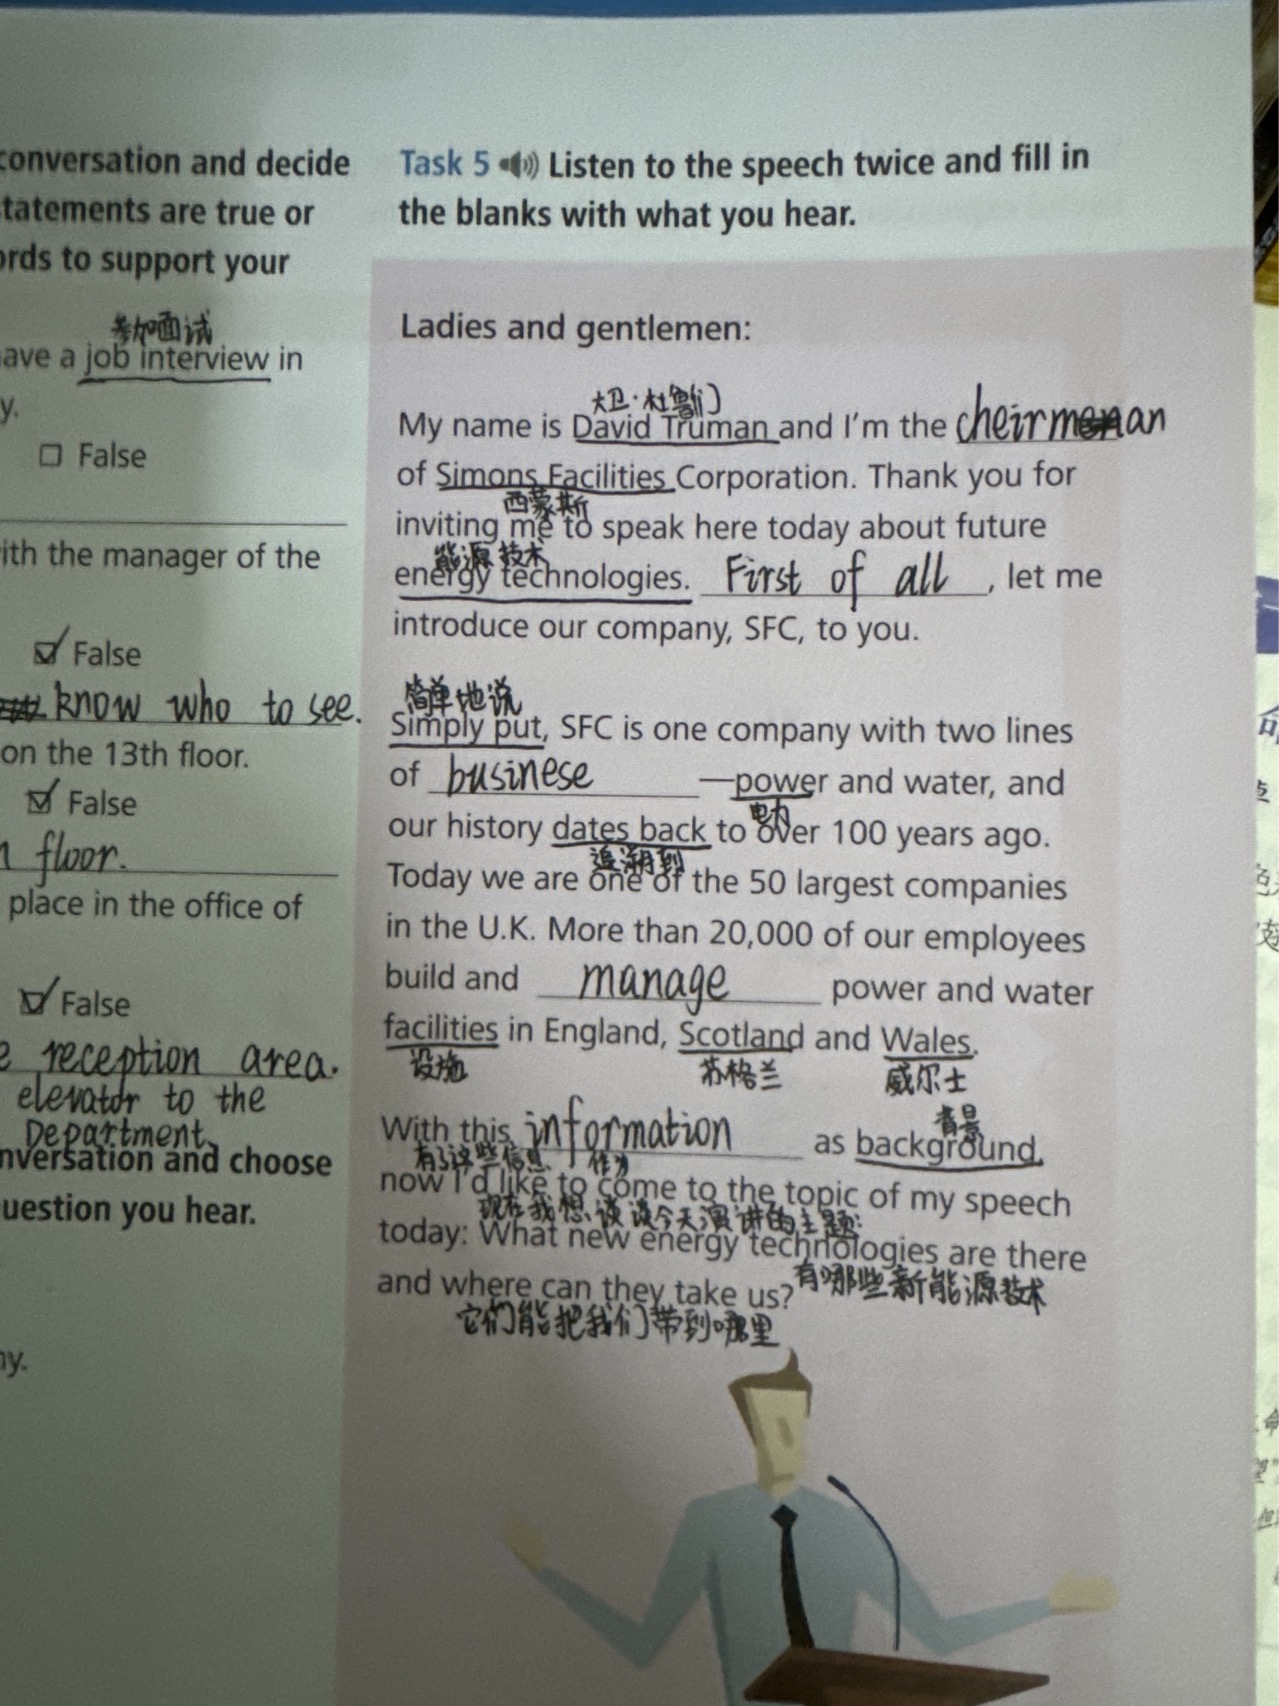 conversation and decide
statements are true or
ords to support your
参加面试
have a job interview in
y.
☐ False
ith the manager of the
☑ False
know who to see.
on the 13th floor.
☑ False
floor.
place in the office of
☑ False
e reception area.
elevator to the
Department.
nversation and choose
uestion you hear.
ny.
Task 5 Listen to the speech twice and fill in
the blanks with what you hear.
Ladies and gentlemen:
大卫·杜鲁们
My name is David Truman and I'm the cheirman
of Simons Facilities Corporation. Thank you for
西蒙斯
inviting me to speak here today about future
能源技术
energy technologies. First of all, let me
introduce our company, SFC, to you.
简单地说
Simply put, SFC is one company with two lines
of businese —power and water, and
电力
our history dates back to over 100 years ago.
追溯到
Today we are one of the 50 largest companies
in the U.K. More than 20,000 of our employees
build and manage power and water
facilities in England, Scotland and Wales.
设施 苏格兰 威尔士
背景
With this information as background,
有了这些信息 作为
now I'd like to come to the topic of my speech
现在我想谈谈今天演讲的主题:
today: What new energy technologies are there
and where can they take us? 有哪些新能源技术
它们能把我们带到哪里